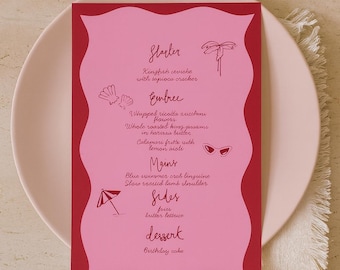 Starter
Kingfish ceviche
with tapioca cracker
Entree
Whipped ricotta zucchini
flowers
Whole roasted king prawns
in harissa butter
Calamari fritti with
lemon aioli
Mains
Blue swimmer crab linguine
Slow cooked lamb shoulder
Sides
fries
butter lettuce
dessert
Birthday cake